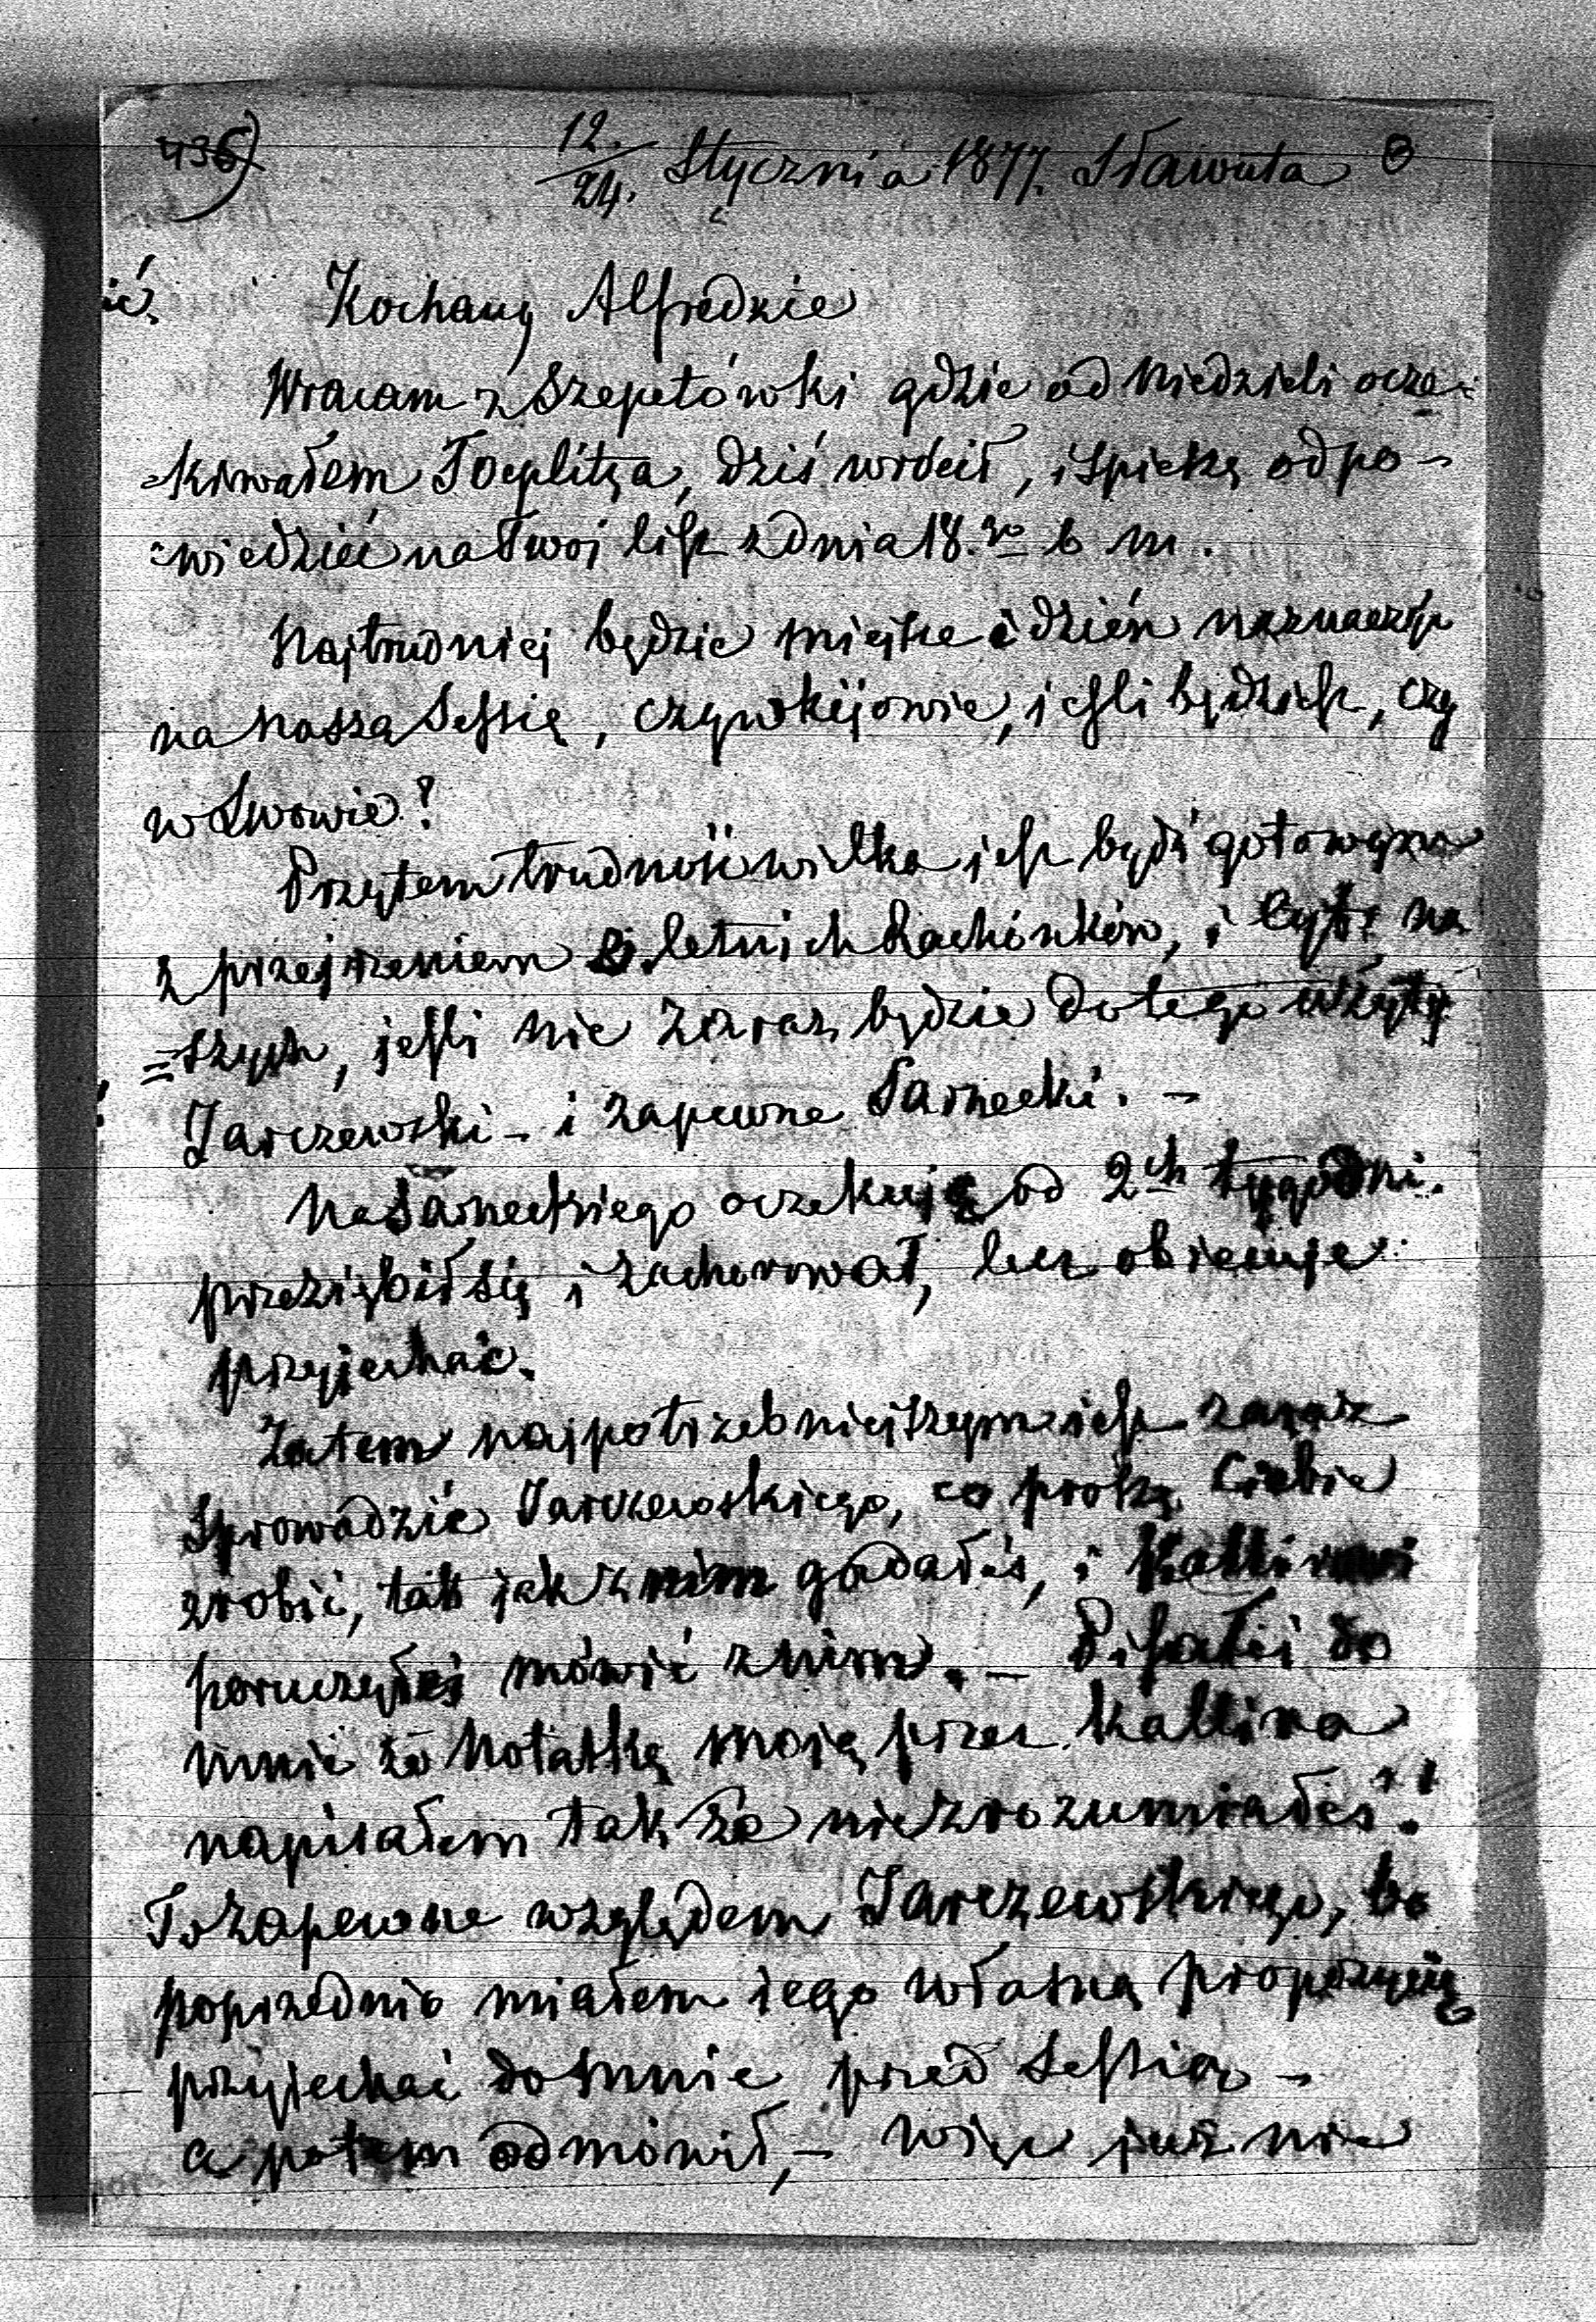 436) 12./24. Stycznia 1877. Sławuta
Kochany Alfredzie
Wracam z Szepetówki gdzie od Niedzieli ocze-
-kiwałem Toeplitza, dziś wrócił, i spieszę odpo-
-wiedzieć na Twoj list z dnia 18.go b m.
Najtrudniej będzie miejsce i dzień naznaczyć
na naszą Sessię, czy w Kijowie, jeśli będziesz, czy
w Lwowie?
Przytem trudność wielka jest być gotowym
z przejrzeniem letnich Rachónków, i na
=szych, jeśli nie zaraz będzie do tego użyty
Jarczewski - i zapewne Sarnecki. -
Na Sarneckiego oczekuję od 2ch tygodni.
przeziębił się i zachorował, lecz obiecuje
przyjechać.
Zatem najpotrzebniejszym jest zaraz
sprowadzić Jarczewskiego, co proszę Ciebie
zrobić, tak jak z nim gadałeś, i Kallinowi
poruczyłeś mówić z nim. - Pisałeś do
mnie że Notatkę moją przez Kallina
napisałem tak że nie zrozumiałeś!
To zapewne względem Jarczewskiego, bo
poprzednio miałem jego własną propozycię
przyjechać do mnie przed Sessią -
a potem odmówił, - więc już nie